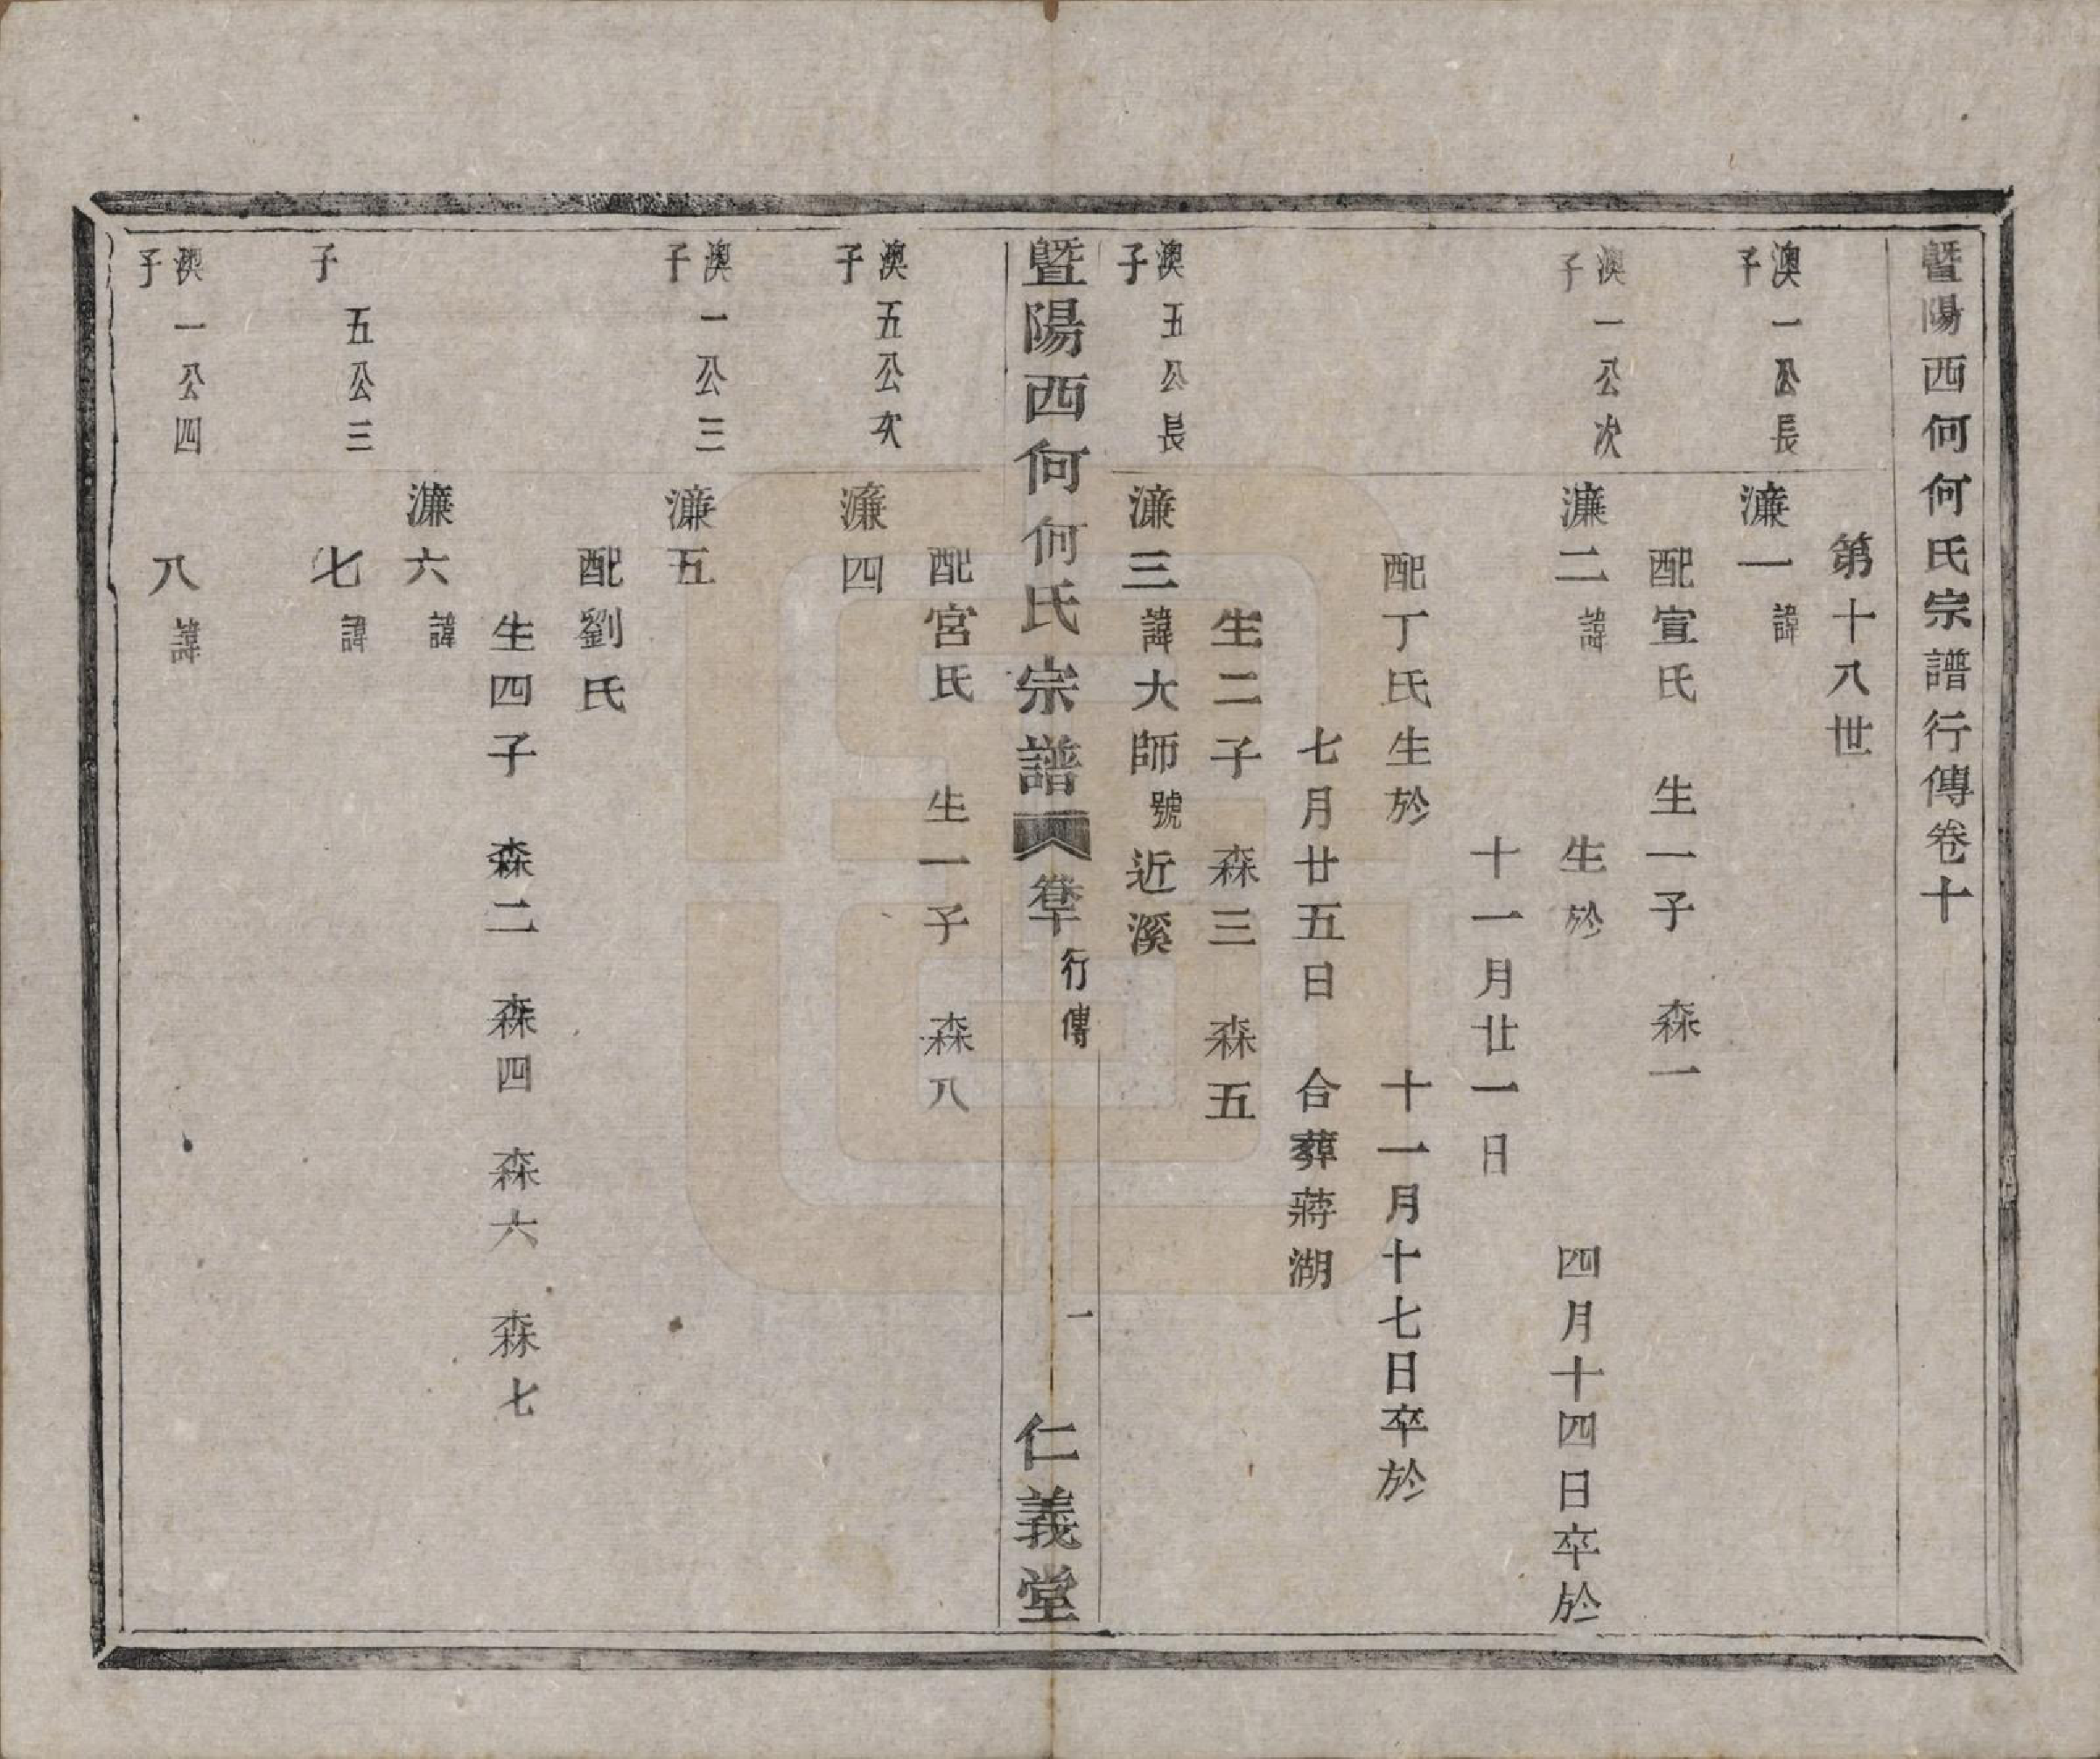 暨陽西何何氏宗譜行傳卷十
第十八世
澳一公長子
濂一諱
配宣氏 生一子 森一
澳一公次子
濂二諱 生於 四月十四日卒於
十一月廿一日
配丁氏生於 十一月十七日卒於
七月廿五日 合葬蔣湖
生二子 森三 森五
澳五公長子
濂三諱大師號近溪
暨陽西何何氏宗譜 卷十 行傳 一 仁義堂
配宮氏 生一子 森八
澳五公次子
濂四
澳一公三子
濂五
配劉氏
生四子 森二 森四 森六 森七
濂六諱
五公三子
七諱
澳一公四子
八諱